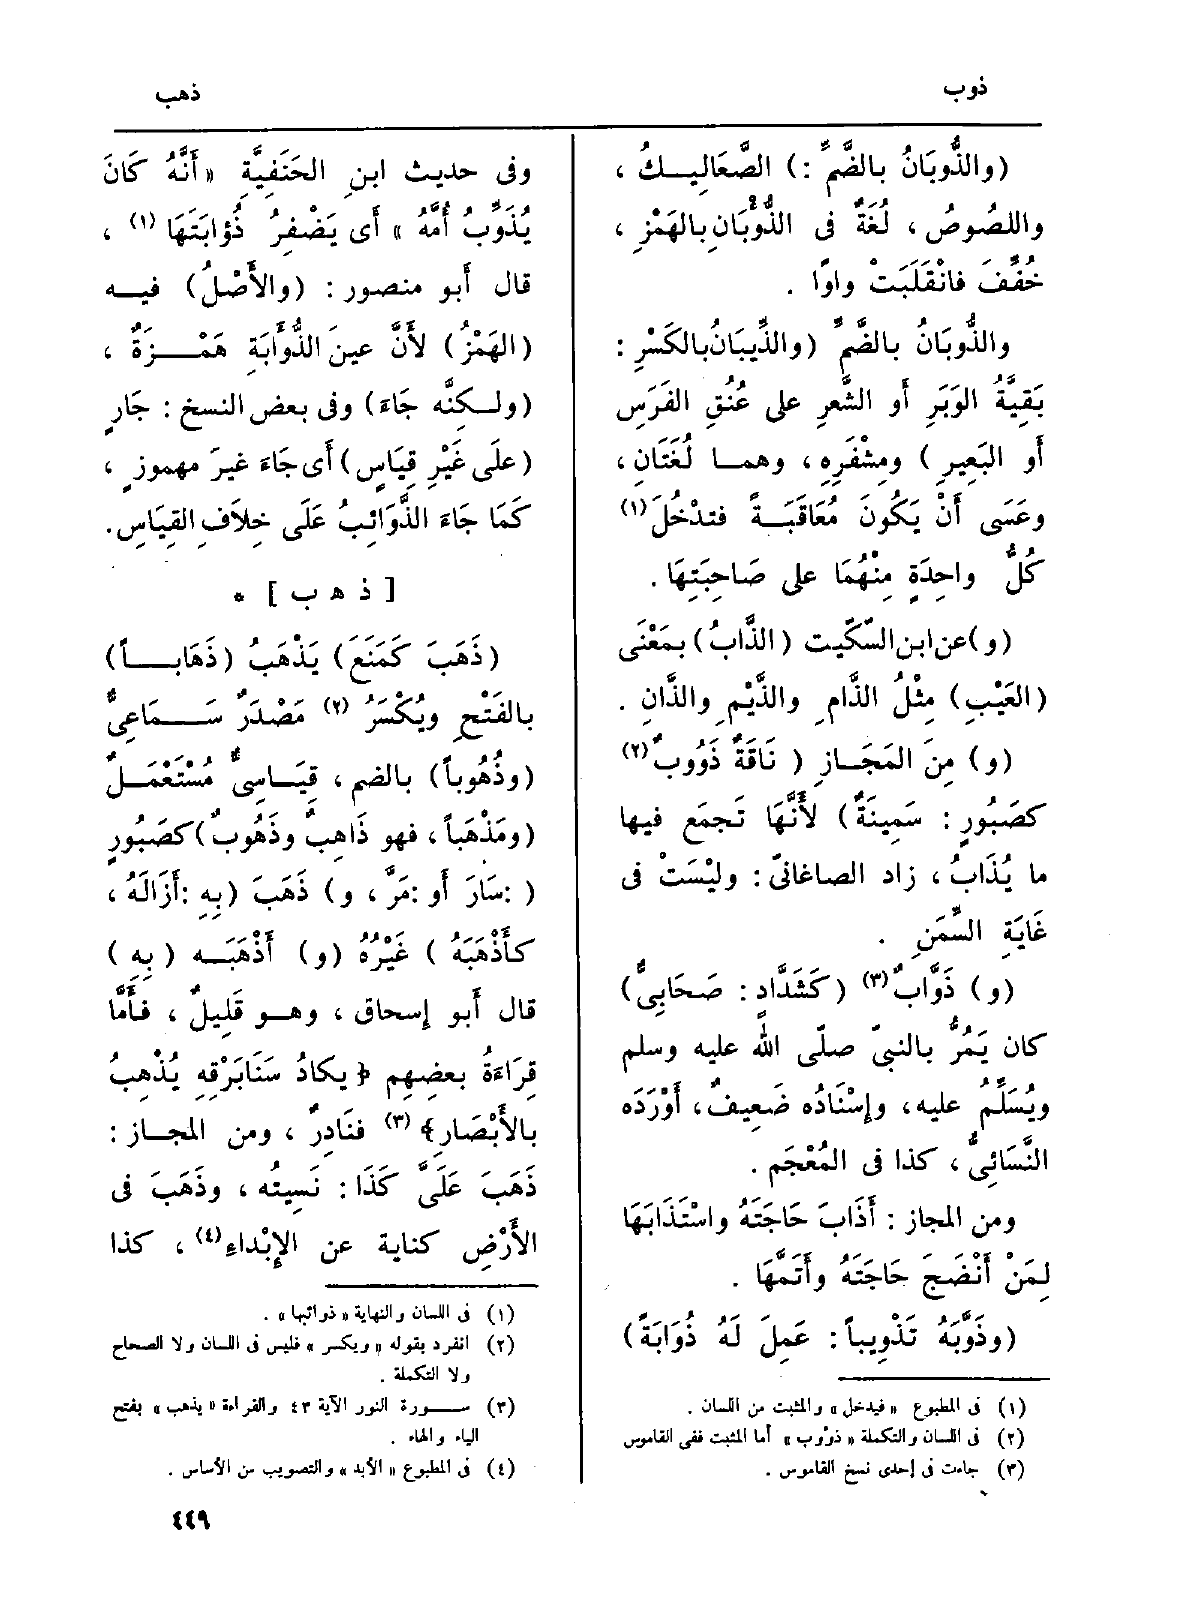 ذوب
ذهب
(والذُّوبَانُ بالضَّمِّ :) الصَّعَالِيكُ ،
واللصُوصُ ، لُغَةٌ فى الذُّؤْبَانِ بالهَمْزِ ،
خُفِّفَ فانْقَلَبَتْ واوًا .
والذُّوبَانُ بالضَّمِّ (والذِّيبَانُ بالكَسْرِ :
بَقِيَّةُ الوَبَرِ أو الشَّعرِ على عُنُقِ الفَرَسِ
أو البَعِيرِ ) ومِشْفَرِهِ ، وهما لُغَتَانِ ،
وعَسَى أَنْ يَكُونَ مُعَاقَبَةً فتدْخُلَ (١)
كُلُّ واحِدَةٍ مِنْهُمَا على صَاحِبَتِهَا .
(و) عن ابن السِّكِّيت (الذَّابُ) بمَعْنَى
(العَيْبِ) مِثْلُ الذَّامِ والذَّيْمِ والذَّانِ .
(و) مِنَ المَجَازِ ( نَاقَةٌ ذَوُوبٌ (٢)
كصَبُورٍ : سَمِينَةٌ) لأَنَّهَا تَجمَع فيها
ما يُذَابُ ، زاد الصاغانىّ : وليْسَتْ فى
غَايَةِ السِّمَنِ .
(و) ذَوَّابٌ (٣) (كَشَدَّادٍ : صَحَابِىٌّ)
كان يَمُرُّ بالنبىّ صلّى الله عليه وسلم
ويُسَلِّمُ عليه، وإسْنَادُه ضَعِيفٌ، أوْرَدَه
النَّسَائِىُّ ، كذا فى المُعْجَم .
ومن المجاز : أَذَابَ حَاجَتَهُ واسْتَذَابَهَا
لِمَنْ أَنْضَجَ حَاجَتَهُ وأَتَمَّهَا .
(وذَوَّبَهُ تَذْوِيباً : عَمِلَ لَهُ ذُوَابَةً)
(١) فى المطبوع « فيدخل » والمثبت من اللسان .
(٢) فى اللسان والتكملة « ذؤوب » أما المثبت ففى القاموس
(٣) جاءت فى إحدى نسخ القاموس .
وفى حديث ابنِ الحَنَفِيَّةِ « أَنَّهُ كَانَ
يُذَوِّبُ أُمَّهُ » أى يَضْفِرُ ذُؤابَتَهَا (١) ،
قال أبو منصور : (والأَصْلُ) فيه
(الهَمْزُ) لأَنَّ عينَ الذُّؤَابَةِ هَمْزَةٌ ،
(ولكِنَّه جَاءَ) وفى بعض النسخ : جَارٍ
(علَى غَيْرِ قِيَاسٍ) أى جَاءَ غيرَ مهموزٍ ،
كمَا جَاءَ الذَّوَائِبُ عَلَى خِلَافِ القِيَاسِ.
[ ذ هـ ب ] *
(ذَهَبَ كَمَنَعَ) يَذْهَبُ (ذَهَاباً)
بالفَتْحِ ويُكْسَرُ (٢) مَصْدَرٌ سَمَاعِىٌّ
(وذُهُوباً) بالضم ، قِيَاسِىٌّ مُسْتَعْمَلٌ
(ومَذْهَباً ، فهو ذَاهِبٌ وذَهُوبٌ) كصَبُورٍ
( :سَارَ أو :مَرَّ ، و) ذَهَبَ (بِهِ :أَزَالَهُ ،
كأَذْهَبَهُ ) غَيْرُهُ (و) أَذْهَبَه (بِهِ )
قال أبو إسحاق ، وهو قَلِيلٌ ، فأَمَّا
قِرَاءَةُ بعضِهِم ﴿ يكادُ سَنَابَرْقِهِ يُذْهِبُ
بالأَبْصَارِ﴾ (٣) فنَادِرٌ ، ومن المجاز :
ذَهَبَ عَلَىَّ كَذَا : نَسِيتُه ، وذَهَبَ فى
الأَرْضِ كناية عن الإِبْداءِ (٤) ، كذا
(١) فى اللسان والنهاية « ذوائبها » .
(٢) انفرد بقوله « ويكسر » فليس فى اللسان ولا الصحاح
ولا التكملة .
(٣) سورة النور الآية ٤٣ والقراءة « يذهب » بفتح
الياء والهاء .
(٤) فى المطبوع « الأبد » والتصويب من الأساس .
٤٤٩